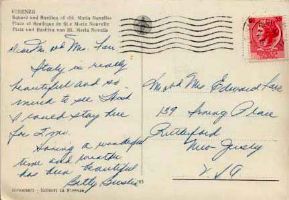 FIRENZE
Square and Basilica of St. Maria Novella
Place et Basilique de St.e Maria Novella
Platz und Basilika von St. Maria Novella
Dear Mr and Mrs
Italy is really
beautiful and so
much to see I think
I could stay here
for
Having a wonderful
time and weather
has been beautiful
Betty
Mr and Mrs Edward
139 Irving Place
Rutherford
New Jersey
USA